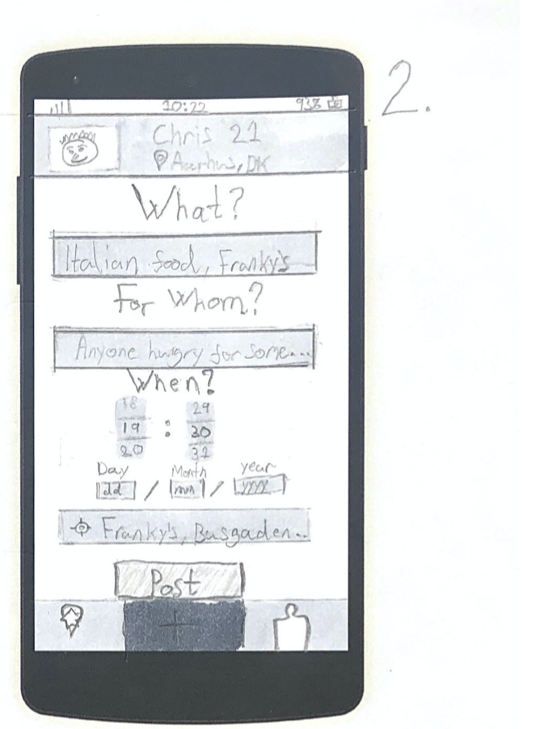 2.
10:22 93%
Chris 21
Aarhus, DK
What?
Italian food, Franky's
For Whom?
Anyone hungry for some...
When?
18 29
19 : 30
20 31
Day Month year
dd / mm / yyyy
Franky's, Busgaden..
Post
+